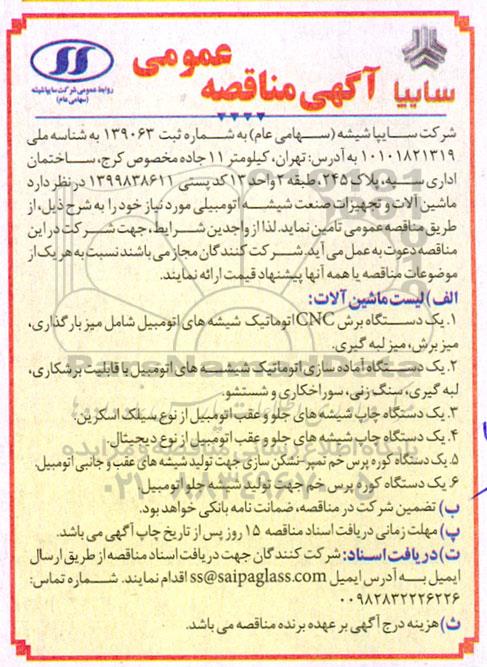 سایپا
آگهی مناقصه عمومی
روابط عمومی شرکت سایپا شیشه
(سهامی عام)
شرکت سـایپا شیشه (سـهامی عام) به شـماره ثبت ۱۳۹۰۶۳ به شناسه ملی
۱۰۱۰۱۸۲۱۳۱۹ به آدرس: تهران، کیلومتر ۱۱ جاده مخصوص کرج، سـاختمان
اداری سـه، پلاک ۲۴۵، طبقه ۲ واحد ۱۳ کد پستی ۱۳۹۹۸۳۸۶۱۱ در نظر دارد
ماشین آلات و تجهیزات صنعت شیشـه اتومبیلی مورد نیاز خود را به شرح ذیل، از
طریق مناقصه عمومی تامین نماید. لذا از واجدین شرایط، جهت شـرکت در این
مناقصه دعوت به عمل می آید. شـرکت کنندگان مجاز می باشند نسبت به هر یک از
موضوعات مناقصه یا همه آنها پیشنهاد قیمت ارائه نمایند.
الف) لیست ماشین آلات:
۱. یک دسـتگاه برش CNC اتوماتیک شیشه های اتومبیل شامل میز بارگذاری،
میز برش، میز لبه گیری.
۲. یک دسـتگاه آماده سازی اتوماتیک شیشـه های اتومبیل با قابلیت برشکاری،
لبه گیری، سنگ زنی، سوراخکاری و شستشو.
۳. یک دستگاه چاپ شیشه های جلو و عقب اتومبیل از نوع سیلک اسکرین.
۴. یک دستگاه چاپ شیشه های جلو و عقب اتومبیل از نوع دیجیتال
۵. یک دستگاه کوره پرس خم تمپر-نشکن سازی جهت تولید شیشه های عقب و جانبی اتومبیل.
۶. یک دستگاه کوره پرس خم جهت تولید شیشه جلو اتومبیل
ب) تضمین شرکت در مناقصه، ضمانت نامه بانکی خواهد بود.
پ) مهلت زمانی دریافت اسناد مناقصه ۱۵ روز پس از تاریخ چاپ آگهی می باشد.
ت) دریافت اسـناد: شرکت کنندگان جهت دریافت اسناد مناقصه از طریق ارسال
ایمیل بـه آدرس ایمیل ss@saipaglass.com اقدام نمایند. شـماره تماس:
۰۰۹۸۲۸۳۲۲۲۶۲۲۶
ث) هزینه درج آگهی بر عهده برنده مناقصه می باشد.
ParsNamadData
پایگاه اطلاع رسانی مناقصه و مزایده